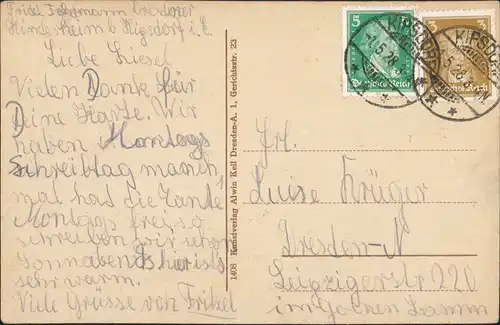 Kinderheim b Kipsdorf i. E.
Liebe Liesel
Vielen Danke für
Deine Karte. Wir
haben Montags
Schreibtag manch,
mal hat die Tante
Montags frei so
schreiben wir schon
Sonnabends hier ists
sehr warm.
Viele Grüsse von Fritzel
1408 Kunstverlag Alwin Keil Dresden-A. 1, Gerichtsstr. 23
5
Deutsches Reich
3
Deutsches Reich
KIPSDORF
5.28
Frl.
Luise Krüger
Dresden-N
Leipzigerstr 220
im goldnen Lamm